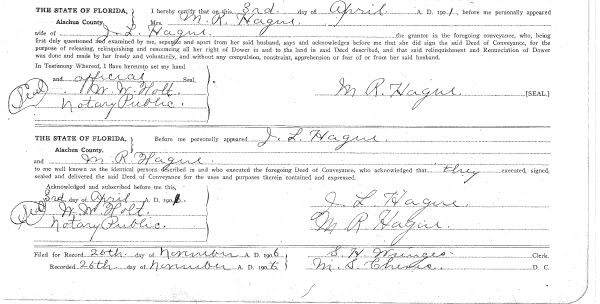 THE STATE OF FLORIDA, } I hereby certify that on this 3rd day of April A. D. 190 , before me personally appeared
Alachua County. Mrs. M. R. Hague
wife of J. L. Hague the grantor in the foregoing conveyance, who, being
first duly questioned and examined by me, separate and apart from her said husband, says and acknowledges before me that she did sign the said Deed of Conveyance, for the
purpose of releasing, relinquishing and renouncing all her right of Dower in and to the land in said Deed described, and that said relinquishment and Renunciation of Dower
was done and made by her freely and voluntarily, and without any compulsion, constraint, apprehension or fear of or from her said husband.
In Testimony Whereof, I have hereunto set my hand
and official Seal,
Seal W. W. Holt. M R. Hague [SEAL.]
Notary Public.
THE STATE OF FLORIDA, } Before me personally appeared J. L Hague
Alachua County.
and M. R. Hague
to me well known as the identical persons described in and who executed the foregoing Deed of Conveyance, who acknowledged that they executed, signed,
sealed and delivered the said Deed of Conveyance for the uses and purposes therein contained and expressed.
Acknowledged and subscribed before me this,
3rd day of April A D. 190
Seal W. W. Holt J L Hague
Notary Public. M R Hague
Filed for Record 26th day of November A D. 1906. S. H. Wienges Clerk.
Recorded 26th day of November A D. 1906 M. S. D C.